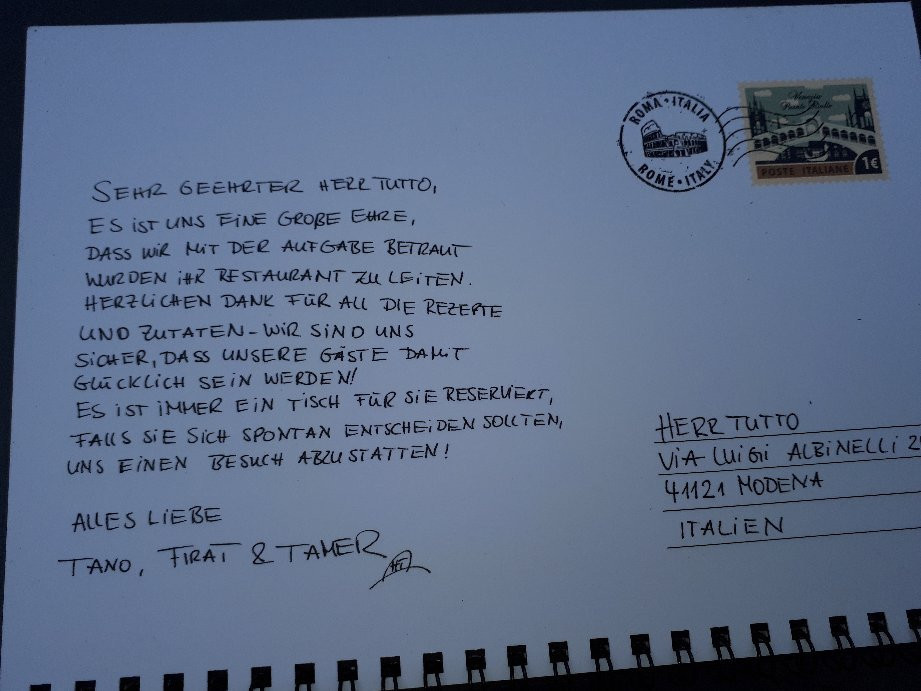 ROMA • ITALIA
ROME • ITALY
Venezia
1€
POSTE ITALIANE
SEHR GEEHRTER HERR TUTTO,
ES IST UNS EINE GROßE EHRE,
DASS WIR MIT DER AUFGABE BETRAUT
WURDEN IHR RESTAURANT ZU LEITEN.
HERZLICHEN DANK FÜR ALL DIE REZEPTE
UND ZUTATEN – WIR SIND UNS
SICHER, DASS UNSERE GÄSTE DAMIT
GLÜCKLICH SEIN WERDEN!
ES IST IMMER EIN TISCH FÜR SIE RESERVIERT,
FALLS SIE SICH SPONTAN ENTSCHEIDEN SOLLTEN,
UNS EINEN BESUCH ABZUSTATTEN!
ALLES LIEBE
TANO, FIRAT & TAMER
HERR TUTTO
VIA LUIGI ALBINELLI
41121 MODENA
ITALIEN